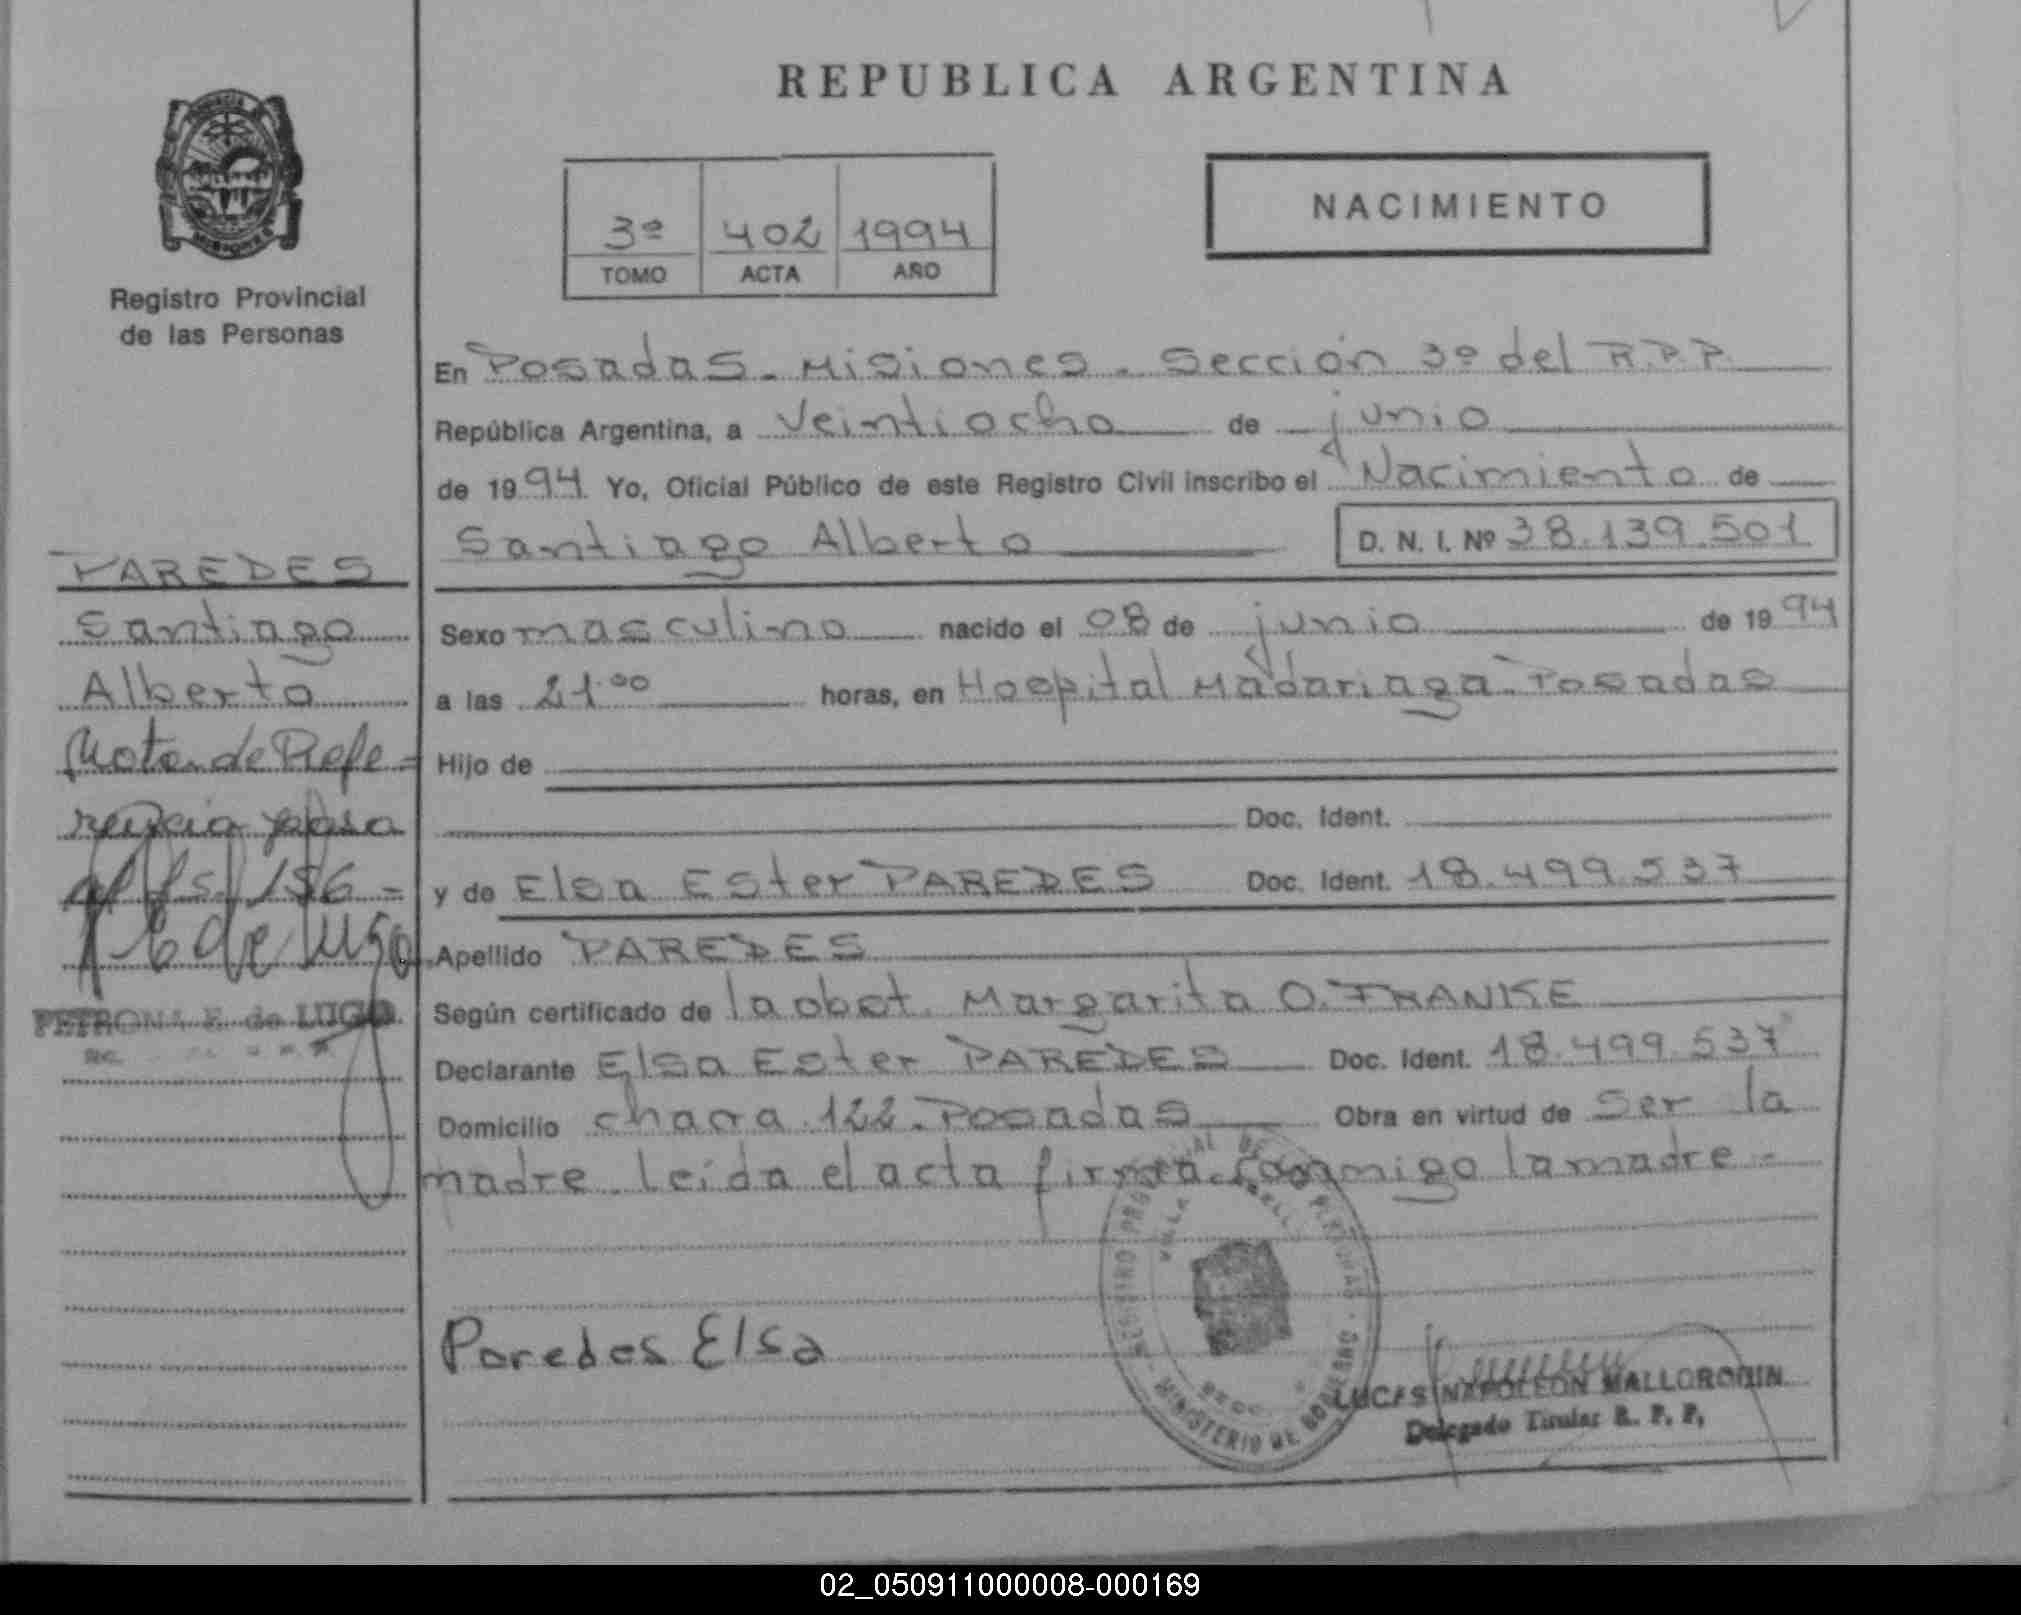 REPUBLICA ARGENTINA
NACIMIENTO
3º 402 1994
TOMO ACTA AÑO
Registro Provincial
de las Personas
En Posadas - Misiones - Sección 3º del R.P.P.
República Argentina, a Veintiocho de junio
de 1994 Yo, Oficial Público de este Registro Civil inscribo el Nacimiento de
Santiago Alberto D. N. I. Nº 38.139.501
Sexo masculino nacido el 08 de junio de 1994
a las 21.00 horas, en Hospital Madariaga - Posadas
Hijo de
Doc. Ident.
y de Elsa Ester PAREDES Doc. Ident. 18.499.537
Apellido PAREDES
Según certificado de la obst. Margarita O. FRANKE
Declarante Elsa Ester PAREDES Doc. Ident. 18.499.537
Domicilio chacra 122 - Posadas Obra en virtud de ser la
madre. Leída el acta firma conmigo la madre =
Paredes Elsa
LUCAS NAPOLEON MALLORQUIN
Delegado Titular R. P. P.
MINISTERIO DE GOBIERNO
PAREDES
Santiago
Alberto
Nota de Refe=
rencia pasa
al fs. 156 =
PETRONA E. de LUGO
02_050911000008-000169